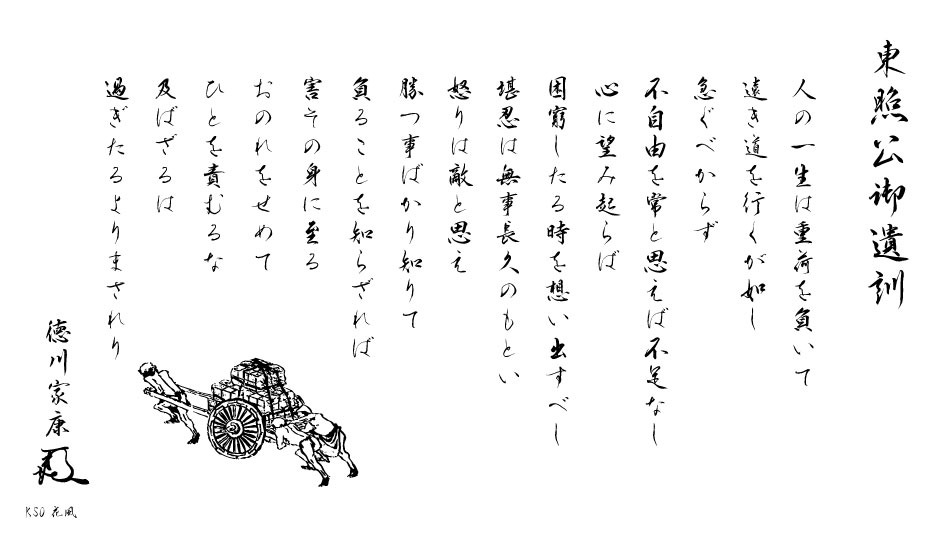 東照公御遺訓
人の一生は重荷を負いて
遠き道を行くが如し
急ぐべからず
不自由を常と思えば不足なし
心に望み起らば
困窮したる時を想い出すべし
堪忍は無事長久のもとい
怒りは敵と思え
勝つ事ばかり知りて
負ることを知らざれば
害その身に至る
おのれをせめて
ひとを責むるな
及ばざるは
過ぎたるよりまされり
徳川家康
KSO 花風